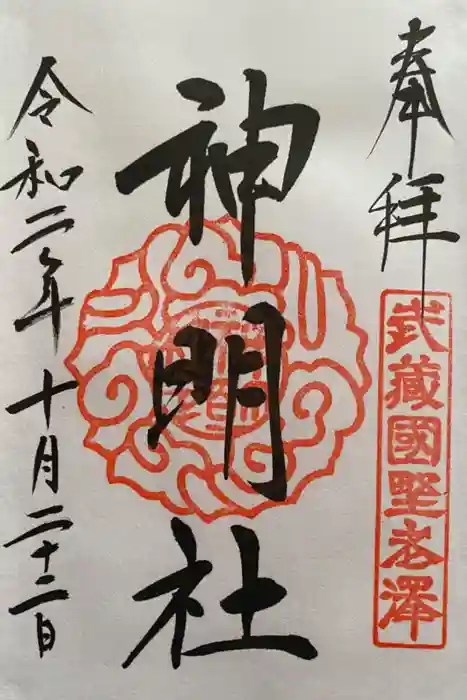 奉拝
武蔵國野老澤
神明社
令和二年十月二十二日